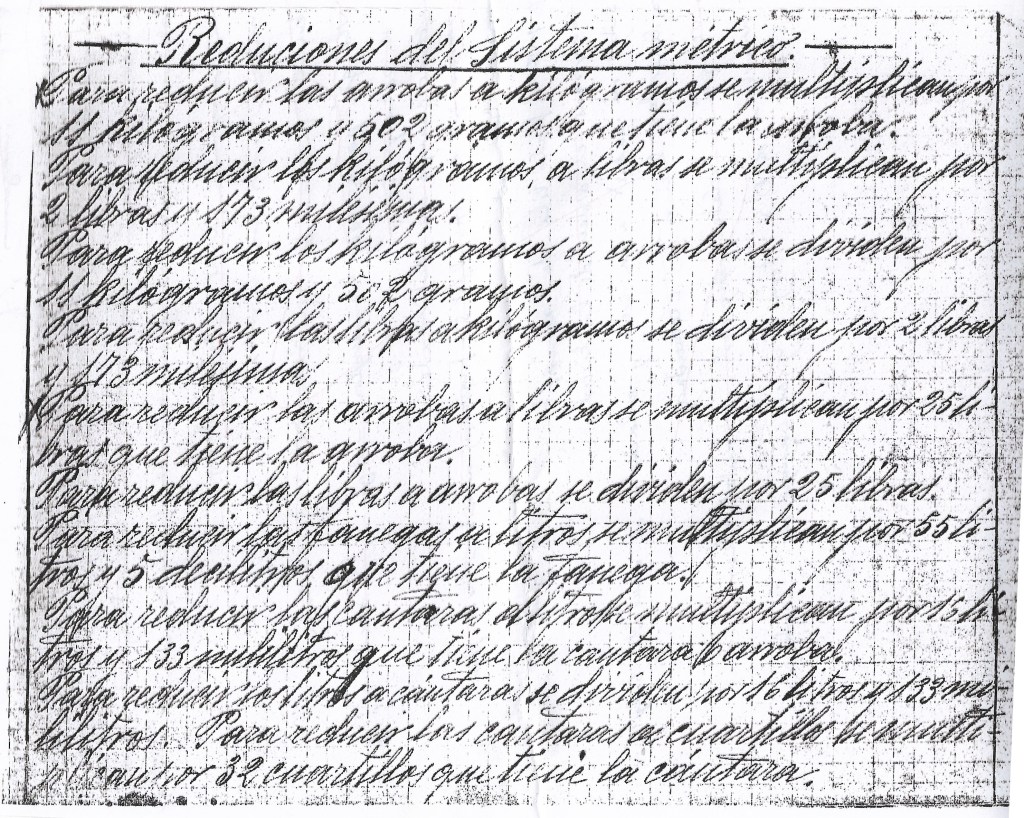 Reduciones del Sistema métrico.
Para reducir las arrobas a kilógramos se multiplican por
11 kilógramos y 502 gramos que tiene la arroba.
Para reducir los kilógramos a libras se multiplican por
2 libras y 173 milésimas.
Para reducir los kilógramos a arrobas se dividen por
11 kilógramos y 502 gramos.
Para reducir las libras a kilógramos se dividen por 2 libras
y 173 milésimas
Para reducir las arrobas a libras se multiplican por 25 li-
bras que tiene la arroba.
Para reducir las libras a arrobas se dividen por 25 libras.
Para reducir las fanegas a litros se multiplican por 55 li-
tros y 5 decilitros que tiene la fanega.
Para reducir las cantaras a litros se multiplican por 16 li-
tros y 133 mililitros que tiene la cantara ó arroba.
Para reducir los litros a cántaras se dividen por 16 litros y 133 mi-
lilitros. Para reducir las cantaras a cuartillos se multi-
plican por 32 cuartillos que tiene la cantara.